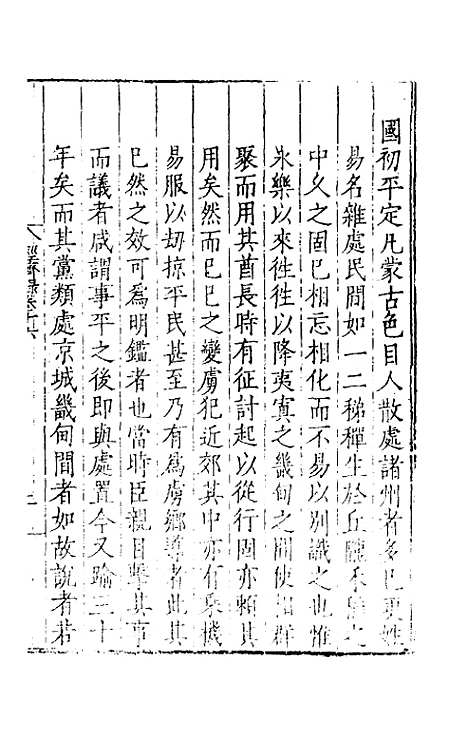 國初平定凡蒙古色目人散處諸州者多已更姓
易名雜處民間如一二稊稗生於丘隴禾黍之
中久之固已相忘相化而不易以別識之也惟
永樂以來徃徃以降夷寘之畿甸之間使相群
聚而用其酋長時有征討起以從行固亦賴其
用矣然而巳巳之變虜犯近郊其中亦有乘機
易服以劫掠平民甚至乃有為虜鄉導者此其
已然之效可為明鑑者也當時臣親目擊其事
而議者咸謂事平之後即與處置今又踰三十
年矣而其黨類處京城畿甸間者如故說者若